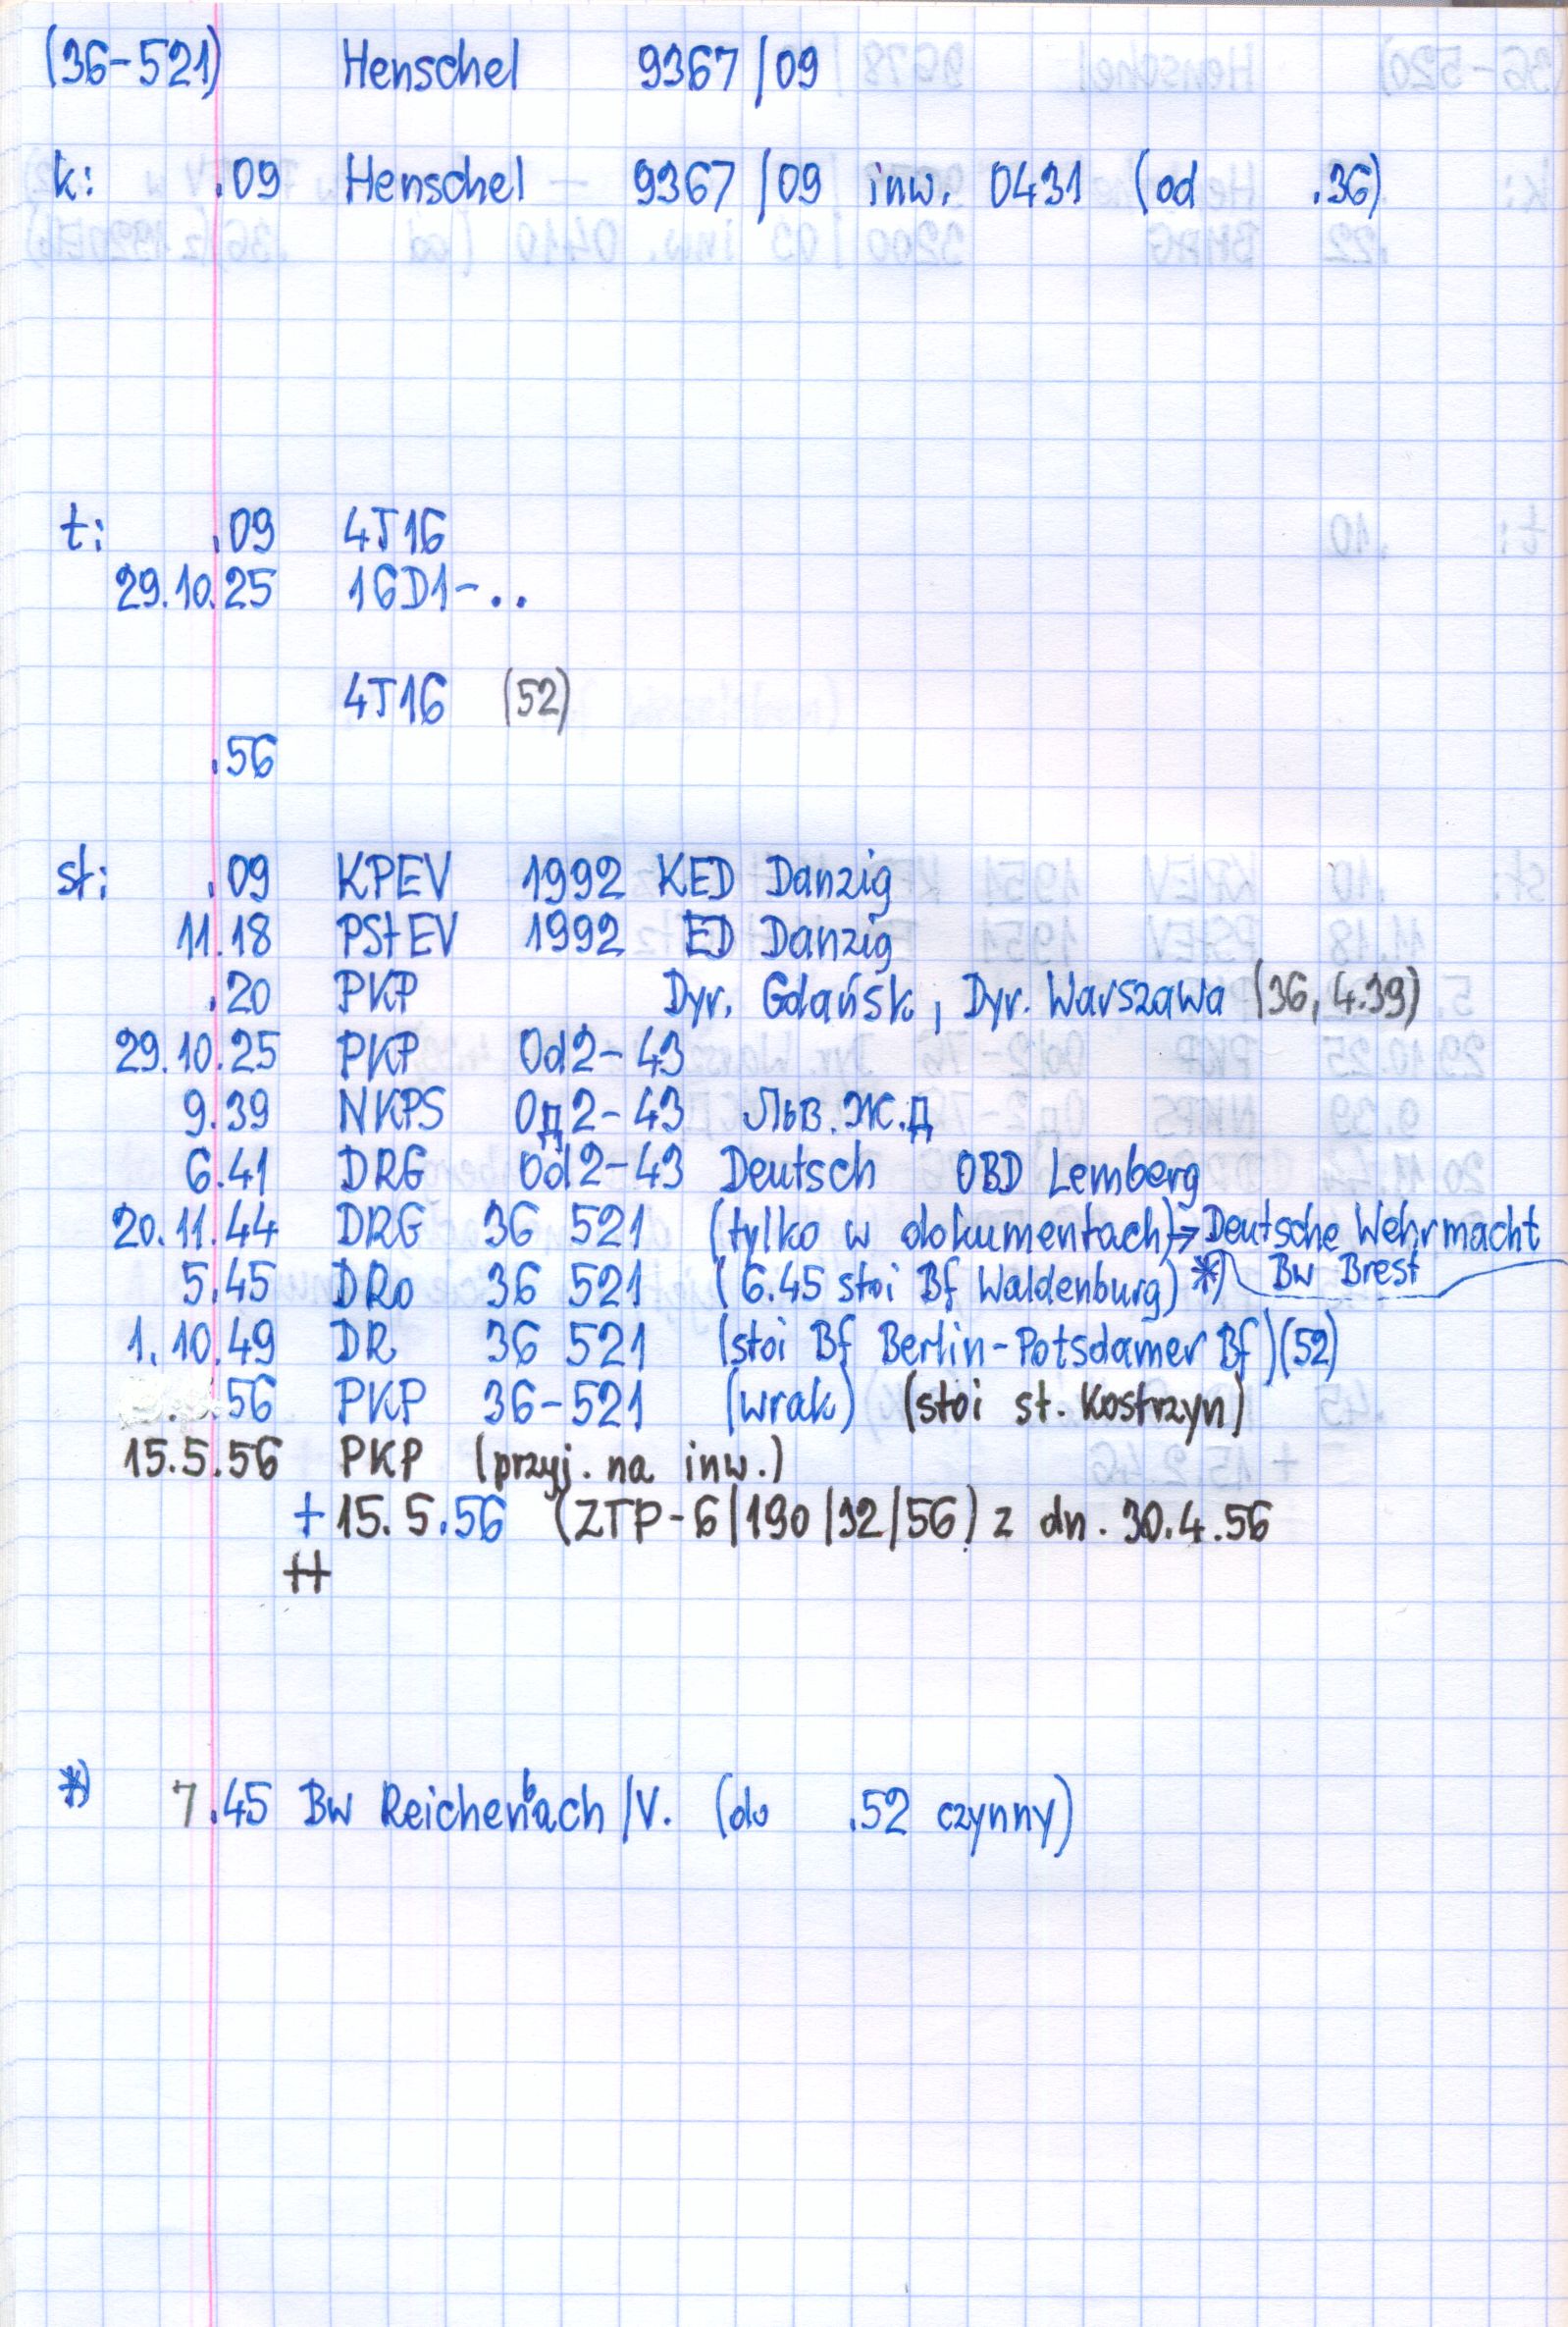 (36-521) Henschel 9367/09
k: .09 Henschel 9367/09 inw. 0431 (od .36)
t: .09 4T16
29.10.25 16D1-..
4T16 (52)
.56
st: .09 KPEV 1992 KED Danzig
11.18 PStEV 1992 ED Danzig
.20 PKP Dyr. Gdańsk, Dyr. Warszawa (36, 4.39)
29.10.25 PKP Od2-43
9.39 NKPS Од2-43 Льв.Ж.Д
6.41 DRG Od2-43 Deutsch OBD Lemberg
20.11.44 DRG 36 521 (tylko w dokumentach)→Deutsche Wehrmacht
5.45 DRo 36 521 (6.45 stoi Bf Waldenburg) *) Bw Brest
1.10.49 DR 36 521 (stoi Bf Berlin-Potsdamer Bf)(52)
.56 PKP 36-521 (wrak) (stoi st. Kostrzyn)
15.5.56 PKP (przyj. na inw.)
+15.5.56 (ZTP-6/190/92/56) z dn. 30.4.56
++
*) 7.45 Bw Reichenbach/V. (do .52 czynny)